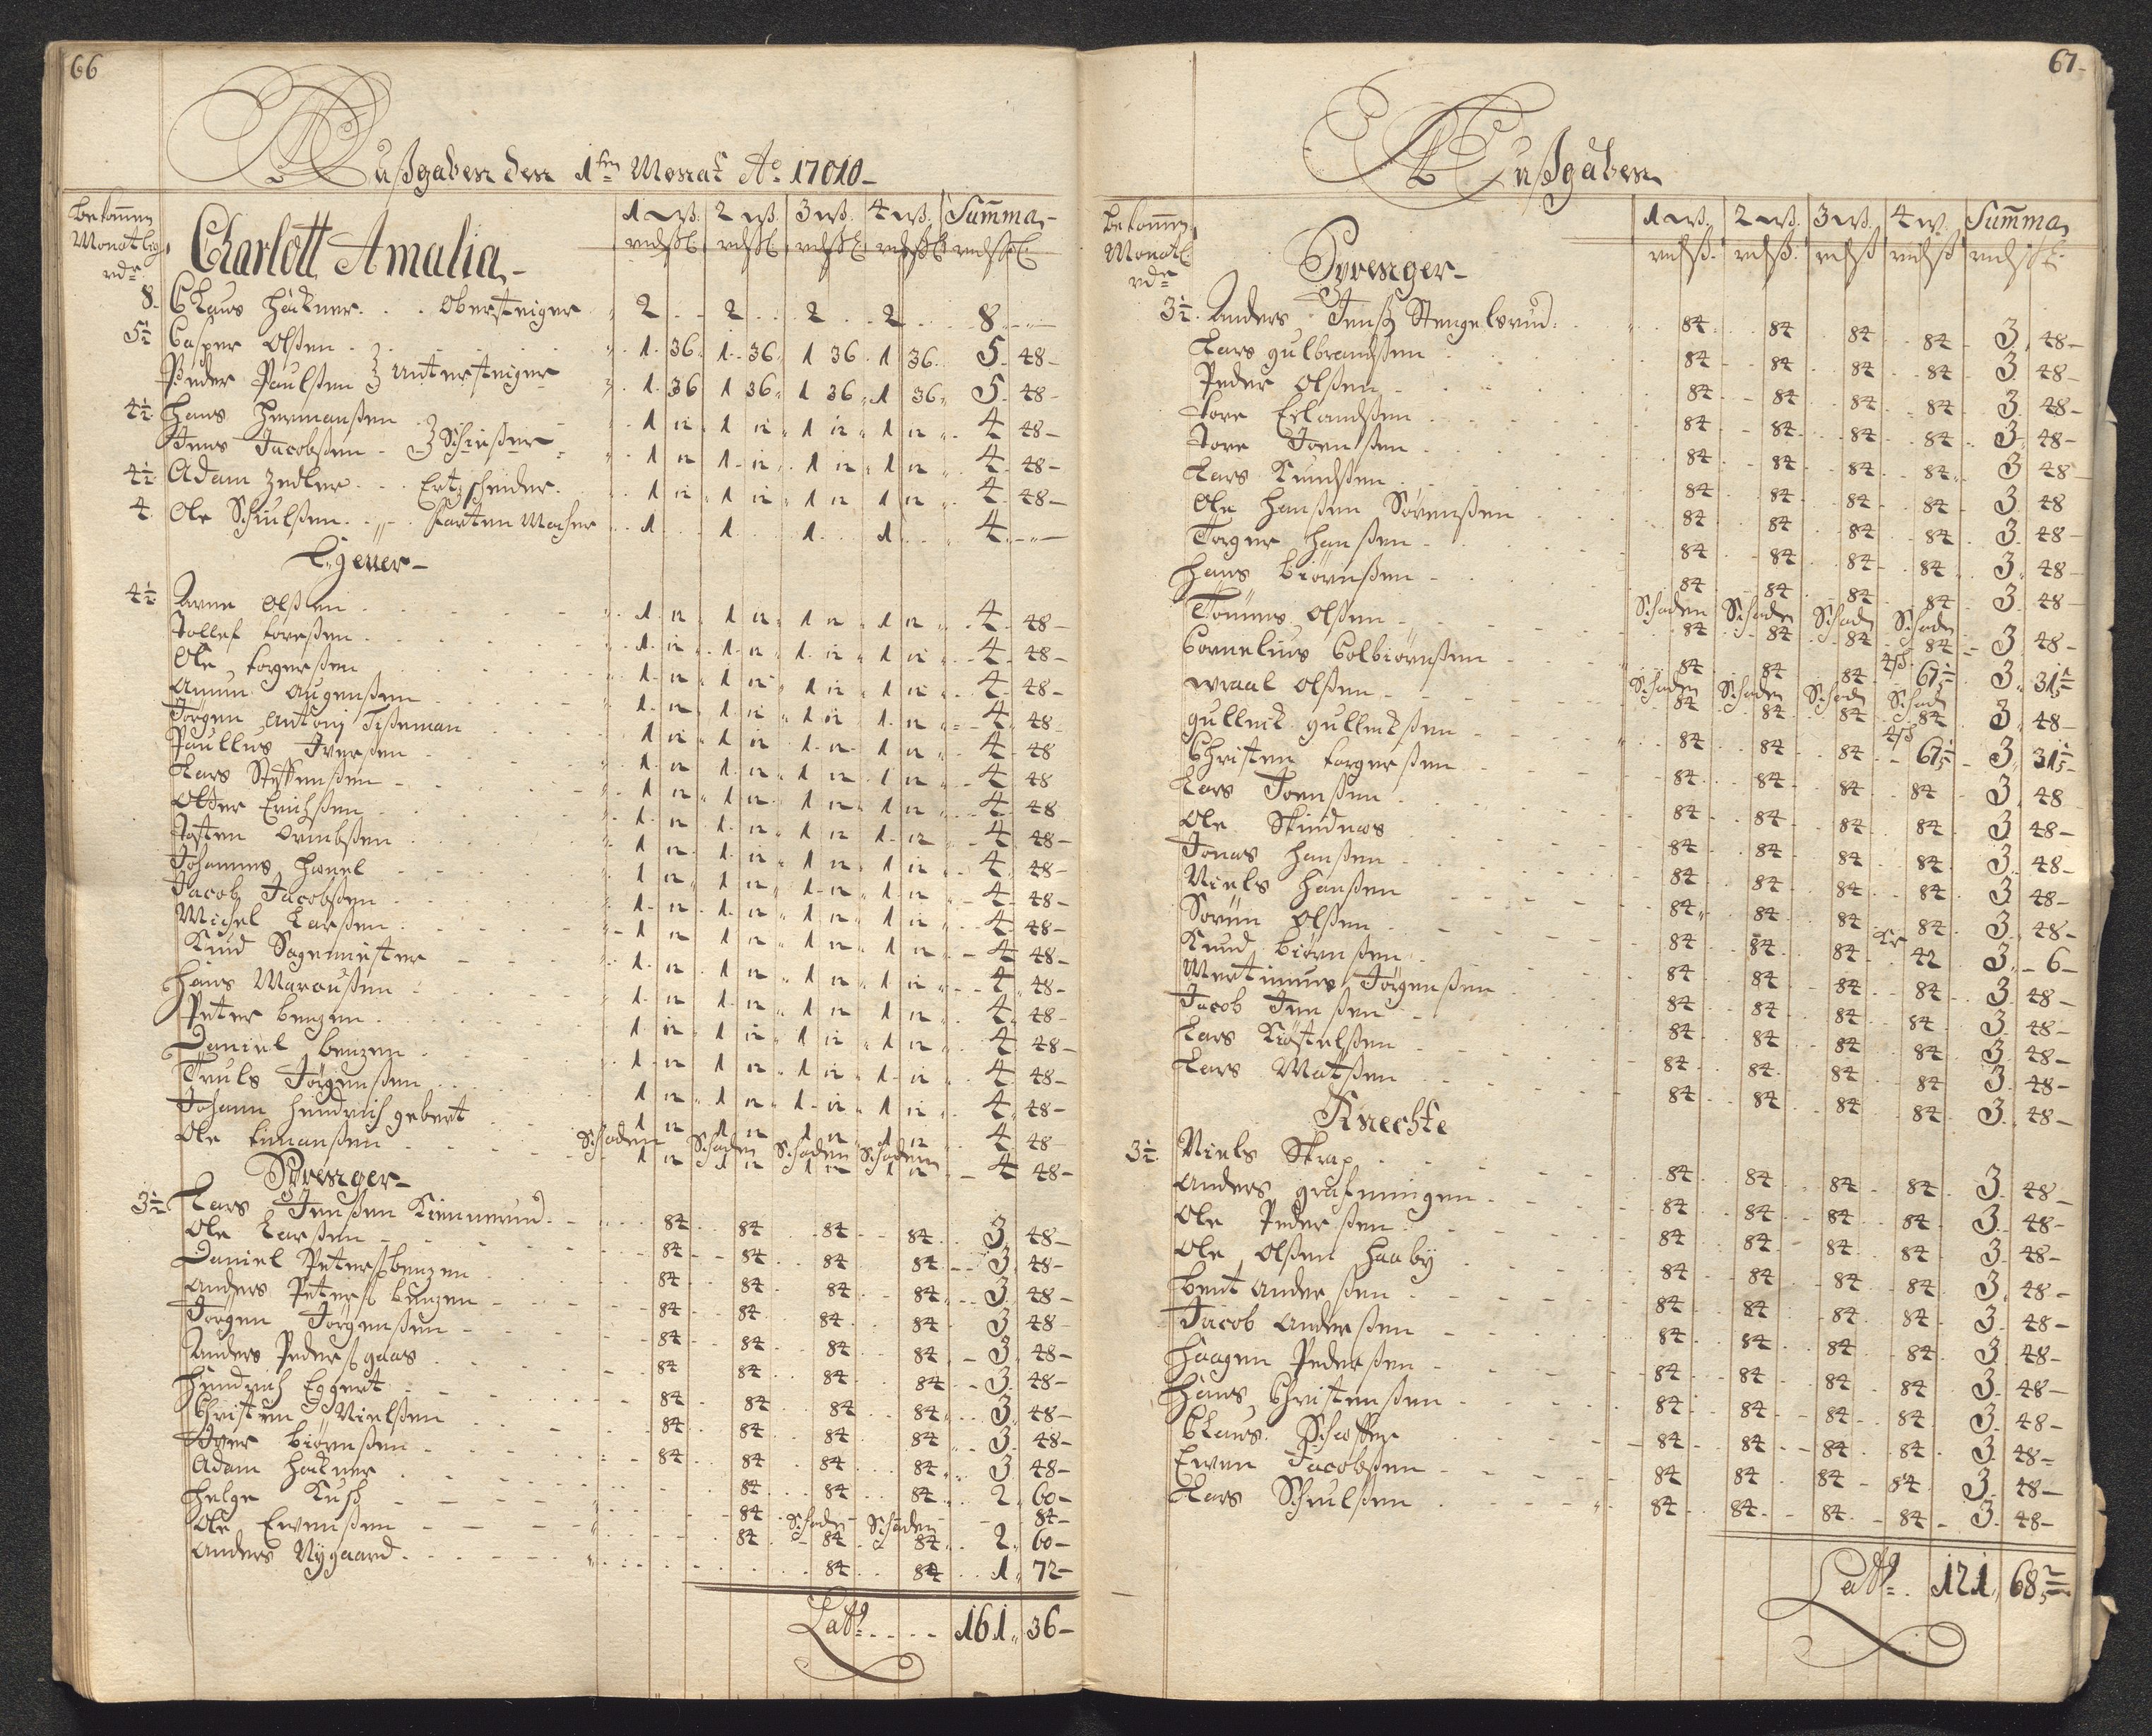 66
Außgaben den 1ten Monat Ao 17010
Bekom̄en Monatlig rdr
1 wß. 2 wß. 3 wß. 4 wß. Sum̄a
Charlott Amalia
8 Claus Häckner Obersteiger 2 2 2 2 8
5½ Casper Olßen 1 36 1 36 1 36 1 36 5 48
Peder Paulßen Untersteiger 1 36 1 36 1 36 1 36 5 48
4½ Hans Hermanßen 1 12 1 12 1 12 1 12 4 48
Jens Jacobßen Schießer 1 12 1 12 1 12 1 12 4 48
4½ Adam Zedler Ertzscheider 1 12 1 12 1 12 1 12 4 48
4 Ole Schiulßen Karten Macher 1 1 1 1 4
4½ Arne Olßen 1 12 1 12 1 12 1 12 4 48
Tollef Toreßen 1 12 1 12 1 12 1 12 4 48
Ole Torgerßen 1 12 1 12 1 12 1 12 4 48
Amun Augenßen 1 12 1 12 1 12 1 12 4 48
Jörgen Antonj Tißeman 1 12 1 12 1 12 1 12 4 48
Paullus Iverßen 1 12 1 12 1 12 1 12 4 48
Lars Steffenßen 1 12 1 12 1 12 1 12 4 48
Olter Erichßen 1 12 1 12 1 12 1 12 4 48
Josten 1 12 1 12 1 12 1 12 4 48
Johannes 1 12 1 12 1 12 1 12 4 48
Jacob Jacobßen 1 12 1 12 1 12 1 12 4 48
Michel Larßen 1 12 1 12 1 12 1 12 4 48
Knud Sagemeister 1 12 1 12 1 12 1 12 4 48
Hans 1 12 1 12 1 12 1 12 4 48
Peter Benzen 1 12 1 12 1 12 1 12 4 48
Daniel Benzen 1 12 1 12 1 12 1 12 4 48
Truls Jörgenßen 1 12 1 12 1 12 1 12 4 48
Johann Hendrich Gebert 1 12 1 12 1 12 1 12 4 48
Schaden Schaden Schaden Schaden
Ole 1 12 1 12 1 12 1 12 4 48
Sprenger
3½ Lars Jenßen 84 84 84 84 3 48
Ole Larßen 84 84 84 84 3 48
Daniel Peterß Benzen 84 84 84 84 3 48
Anders Peterß Benzen 84 84 84 84 3 48
Jörgen Jörgenßen 84 84 84 84 3 48
Anders Pederß Gaas 84 84 84 84 3 48
Hendrich Eggert 84 84 84 84 3 48
Christen Nielßen 84 84 84 84 3 48
Iver Biörnßen 84 84 84 84 3 48
Adam Häckner 84 84 84 2 60
Helge Kusch 84 84
Schaden Schaden
Ole Evenßen 84 84 84 2 60
Anders Nygaard 84 84 1 72
Latt 161 36
67
Außgaben
Bekom̄en Monatl rdr
1 wß. 2 wß. 3 wß. 4 w. Sum̄a
Sprenger
3½ Anders Jenß Stengelsrud 84 84 84 84 3 48
Lars Gulbrandßen 84 84 84 84 3 48
Peder Olßen 84 84 84 84 3 48
Tore Erlandßen 84 84 84 84 3 48
Tore Joenßen 84 84 84 84 3 48
Lars Knudßen 84 84 84 84 3 48
Ole Hanßen Sörenßen 84 84 84 84 3 48
Torger Hanßen 84 84 84 84 3 48
Hans Biörnßen 84 84 84 84 3 48
Schaden Schaden Schad Schad
Tommes Olßen 84 84 84 84 3 48
Cornelius Colbiörnßen 84 84 84 4ß 67 3 31
Schaden Schaden Schad Schad
Wraal Olßen 84 84 84 84 3 48
Gulleick Gulleickßen 84 84 84 4ß 67 3 31
Christen Torgerßen 84 84 84 84 3 48
Lars Joenßen 84 84 84 84 3 48
Ole Skindnas 84 84 84 84 3 48
Jonas Hanßen 84 84 84 84 3 48
Niels Hanßen 84 84 84 84 3 48
Sören Olßen 84 84 84 42 3 6
Knud Biörnßen 84 84 84 84 3 48
Mertinus Jörgenßen 84 84 84 84 3 48
Jacob Jenßen 84 84 84 84 3 48
Lars Kiöstelßen 84 84 84 84 3 48
Lars Matßen 84 84 84 84 3 48
Knechte
3½ Niels Skrap 84 84 84 84 3 48
Anders Grafningen 84 84 84 84 3 48
Ole Pederßen 84 84 84 84 3 48
Ole Olßen Haaby 84 84 84 84 3 48
Bent Anderßen 84 84 84 84 3 48
Jacob Anderßen 84 84 84 84 3 48
Haagen Pederßen 84 84 84 84 3 48
Hans Christenßen 84 84 84 84 3 48
Claus Schäffer 84 84 84 84 3 48
Even Jacobßen 84 84 84 84 3 48
Lars Schiulßen 84 84 84 84 3 48
Latt 121 68